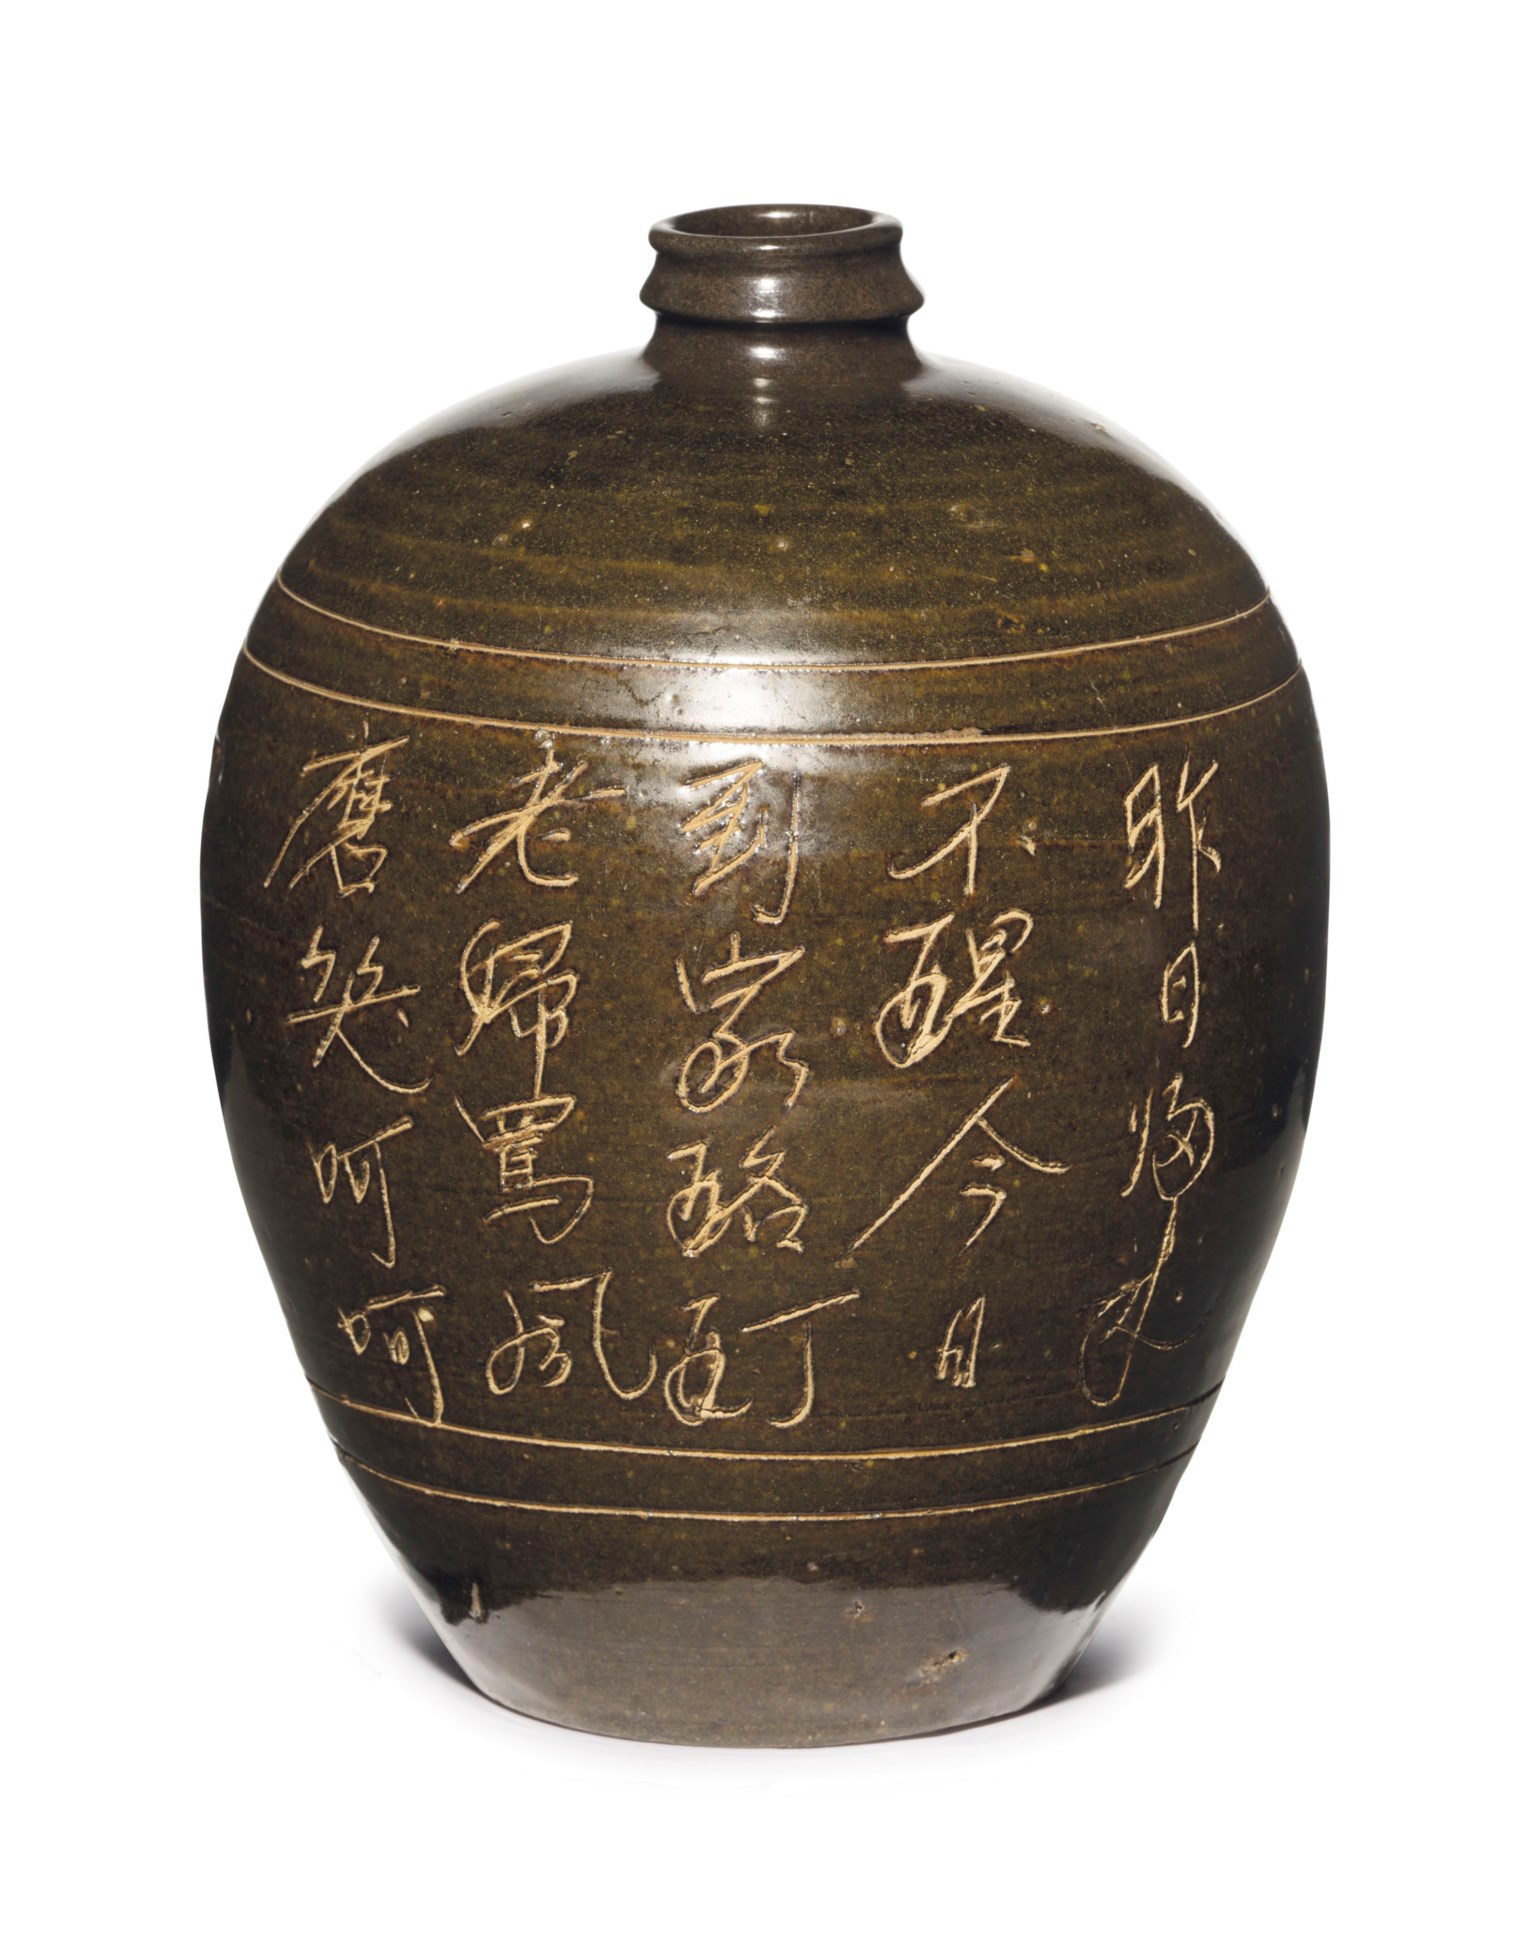 昨日歸来
不醒今日
到家酩酊
老婦罵風
磨笑呵呵